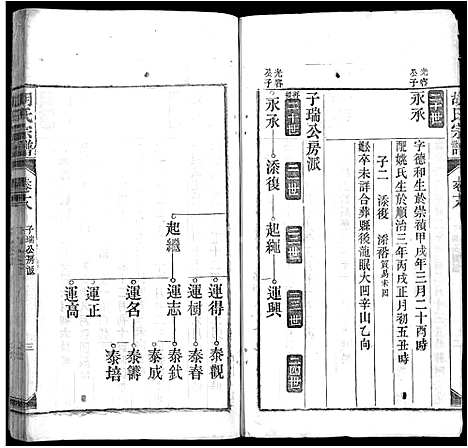 胡氏宗譜
二十世
光容公子
永承
字德和生於崇禎甲戌年三月二十酉時
配姚氏生於順治三年丙戌正月初五丑時
子二 添復 添裕
歿卒未詳合葬縣後龍眠大凹辛山乙向
子瑞公房派
二十世
二二世
二三世
二四世
光容公子
永承
添復
起繩
運興
胡氏宗譜
卷首
子瑞公房派
三
起繩
運得
運樹
運志
運名
運正
運高
泰觀
泰春
泰釴
泰成
泰籌
泰培